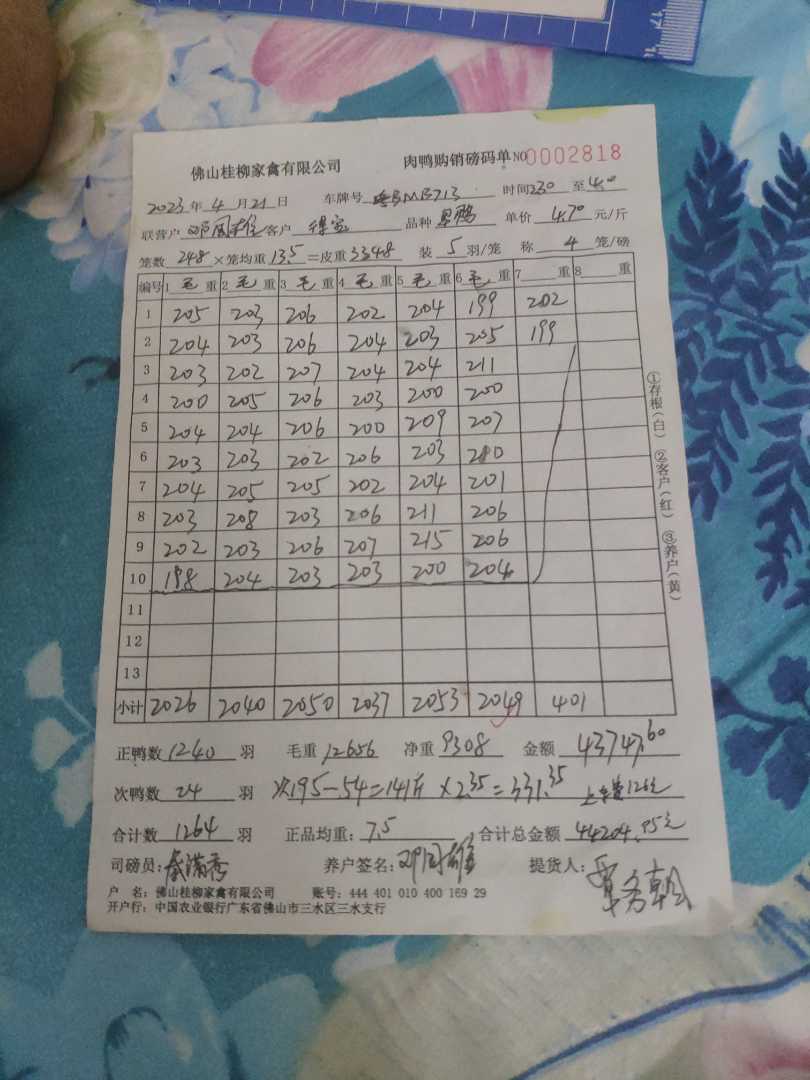 佛山桂柳家禽有限公司 肉鸭购销磅码单 NO0002818
2023年4月21日 车牌号 MB713 时间230至4.0
联营户 邓国雄 客户 品种 单价 4.70 元/斤
笼数 248 ×笼均重 13.5 =皮重 3348 装 5 羽/笼 称 4 笼/磅
编号 1 毛 重 2 毛 重 3 毛 重 4 毛 重 5 毛 重 6 毛 重 7 重 8 重
1 205 203 206 202 204 199 202
2 204 203 206 204 203 205 199
3 203 202 207 204 204 211
4 200 205 206 203 200 200
5 204 204 206 200 209 207
6 203 203 202 206 203 210
7 204 205 205 202 204 201
8 203 208 203 206 211 206
9 202 203 206 207 215 206
10 198 204 203 203 200 204
11
12
13
小计 2026 2040 2050 2037 2053 2049 401
正鸭数 1240 羽 毛重 12656 净重 9308 金额 43747.60
次鸭数 24 羽 次195-54=141斤×2.35=331.35 上车费126元
合计数 1264 羽 正品均重: 7.5 合计总金额 44204.95元
司磅员: 养户签名: 邓国雄 提货人:
户 名: 佛山桂柳家禽有限公司 账号: 444 401 010 400 169 29
开户行: 中国农业银行广东省佛山市三水区三水支行
①存根(白) ②客户(红) ③养户(黄)